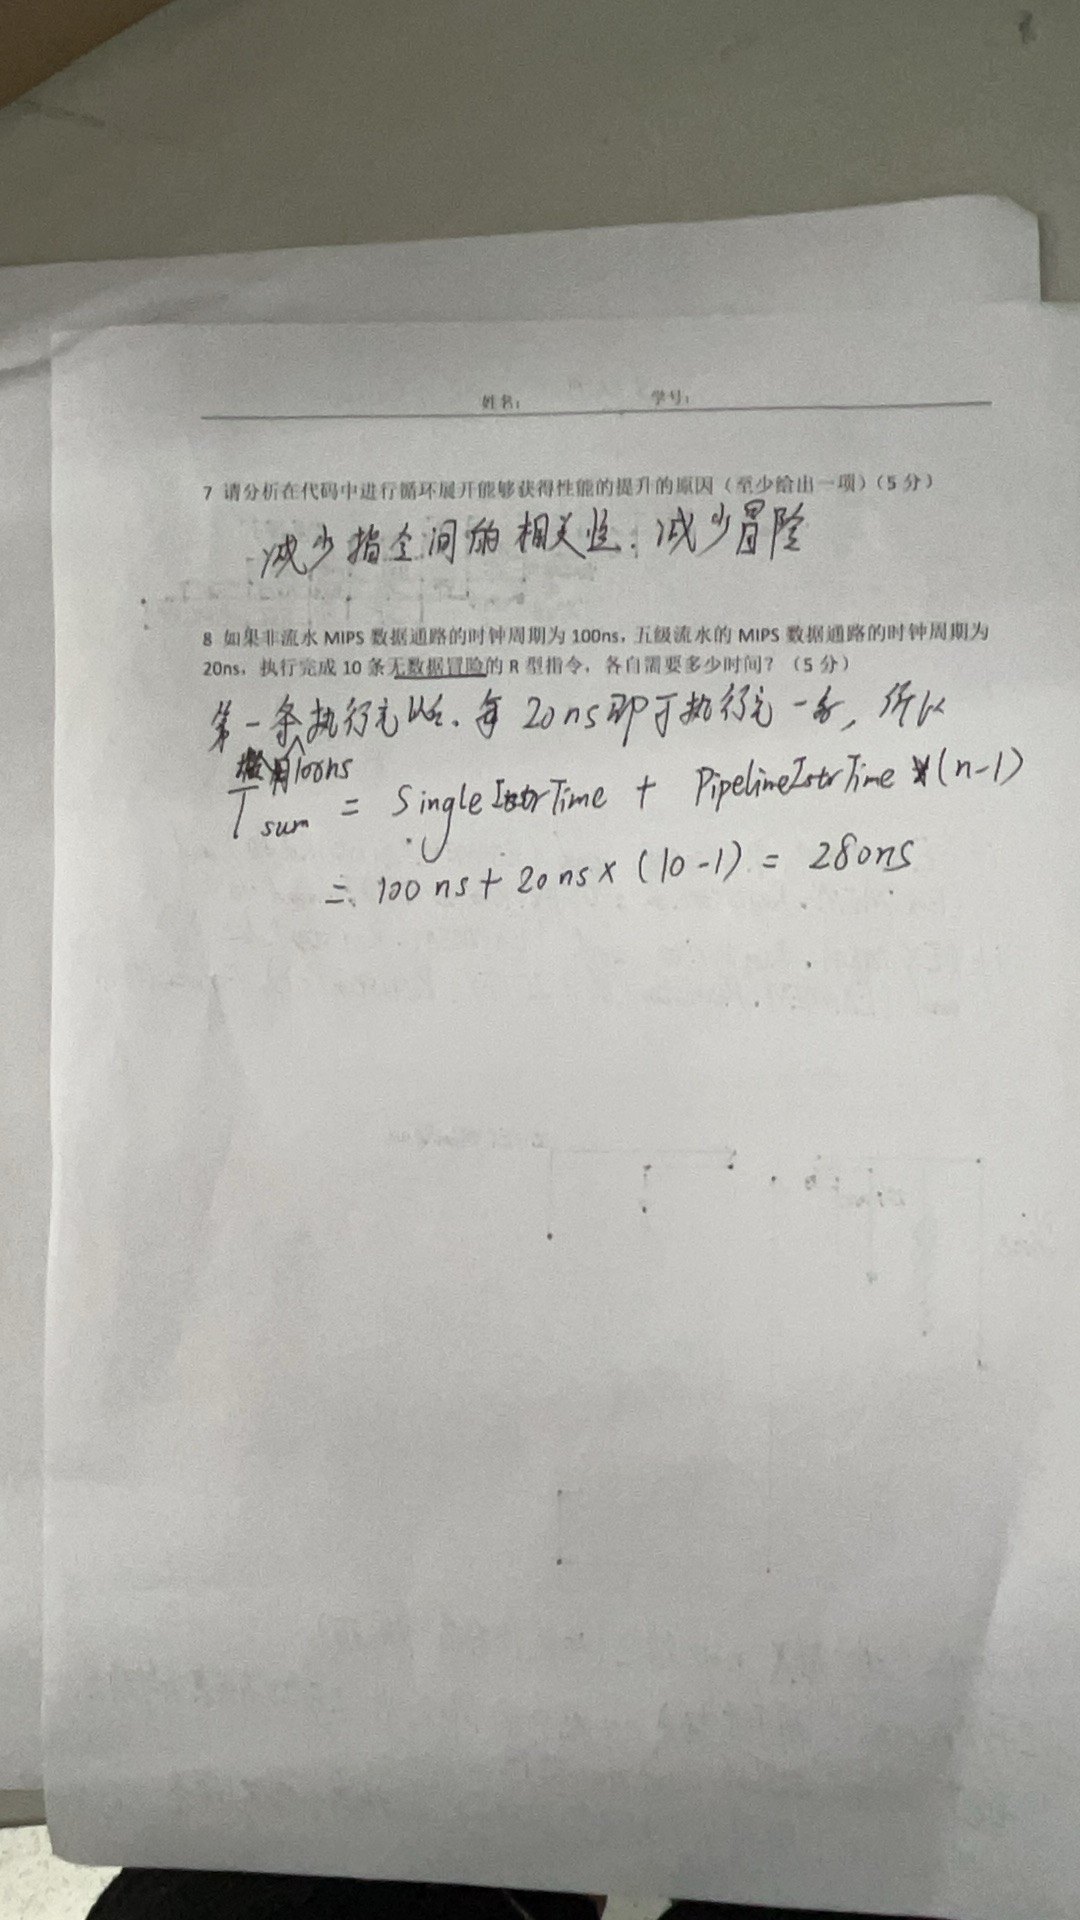 姓名： 学号：
7 请分析在代码中进行循环展开能够获得性能的提升的原因（至少给出一项）（5 分）
减少指令间的相关性，减少冒险
8 如果非流水 MIPS 数据通路的时钟周期为 100ns，五级流水的 MIPS 数据通路的时钟周期为
20ns，执行完成 10 条无数据冒险的 R 型指令，各自需要多少时间？（5 分）
第一条执行完以后，每 20ns即可执行完一条，所以
用100ns
Tsum = SingleInstrTime + PipelineIstrTime *(n-1)
= 100 ns + 20 ns × (10-1) = 280ns